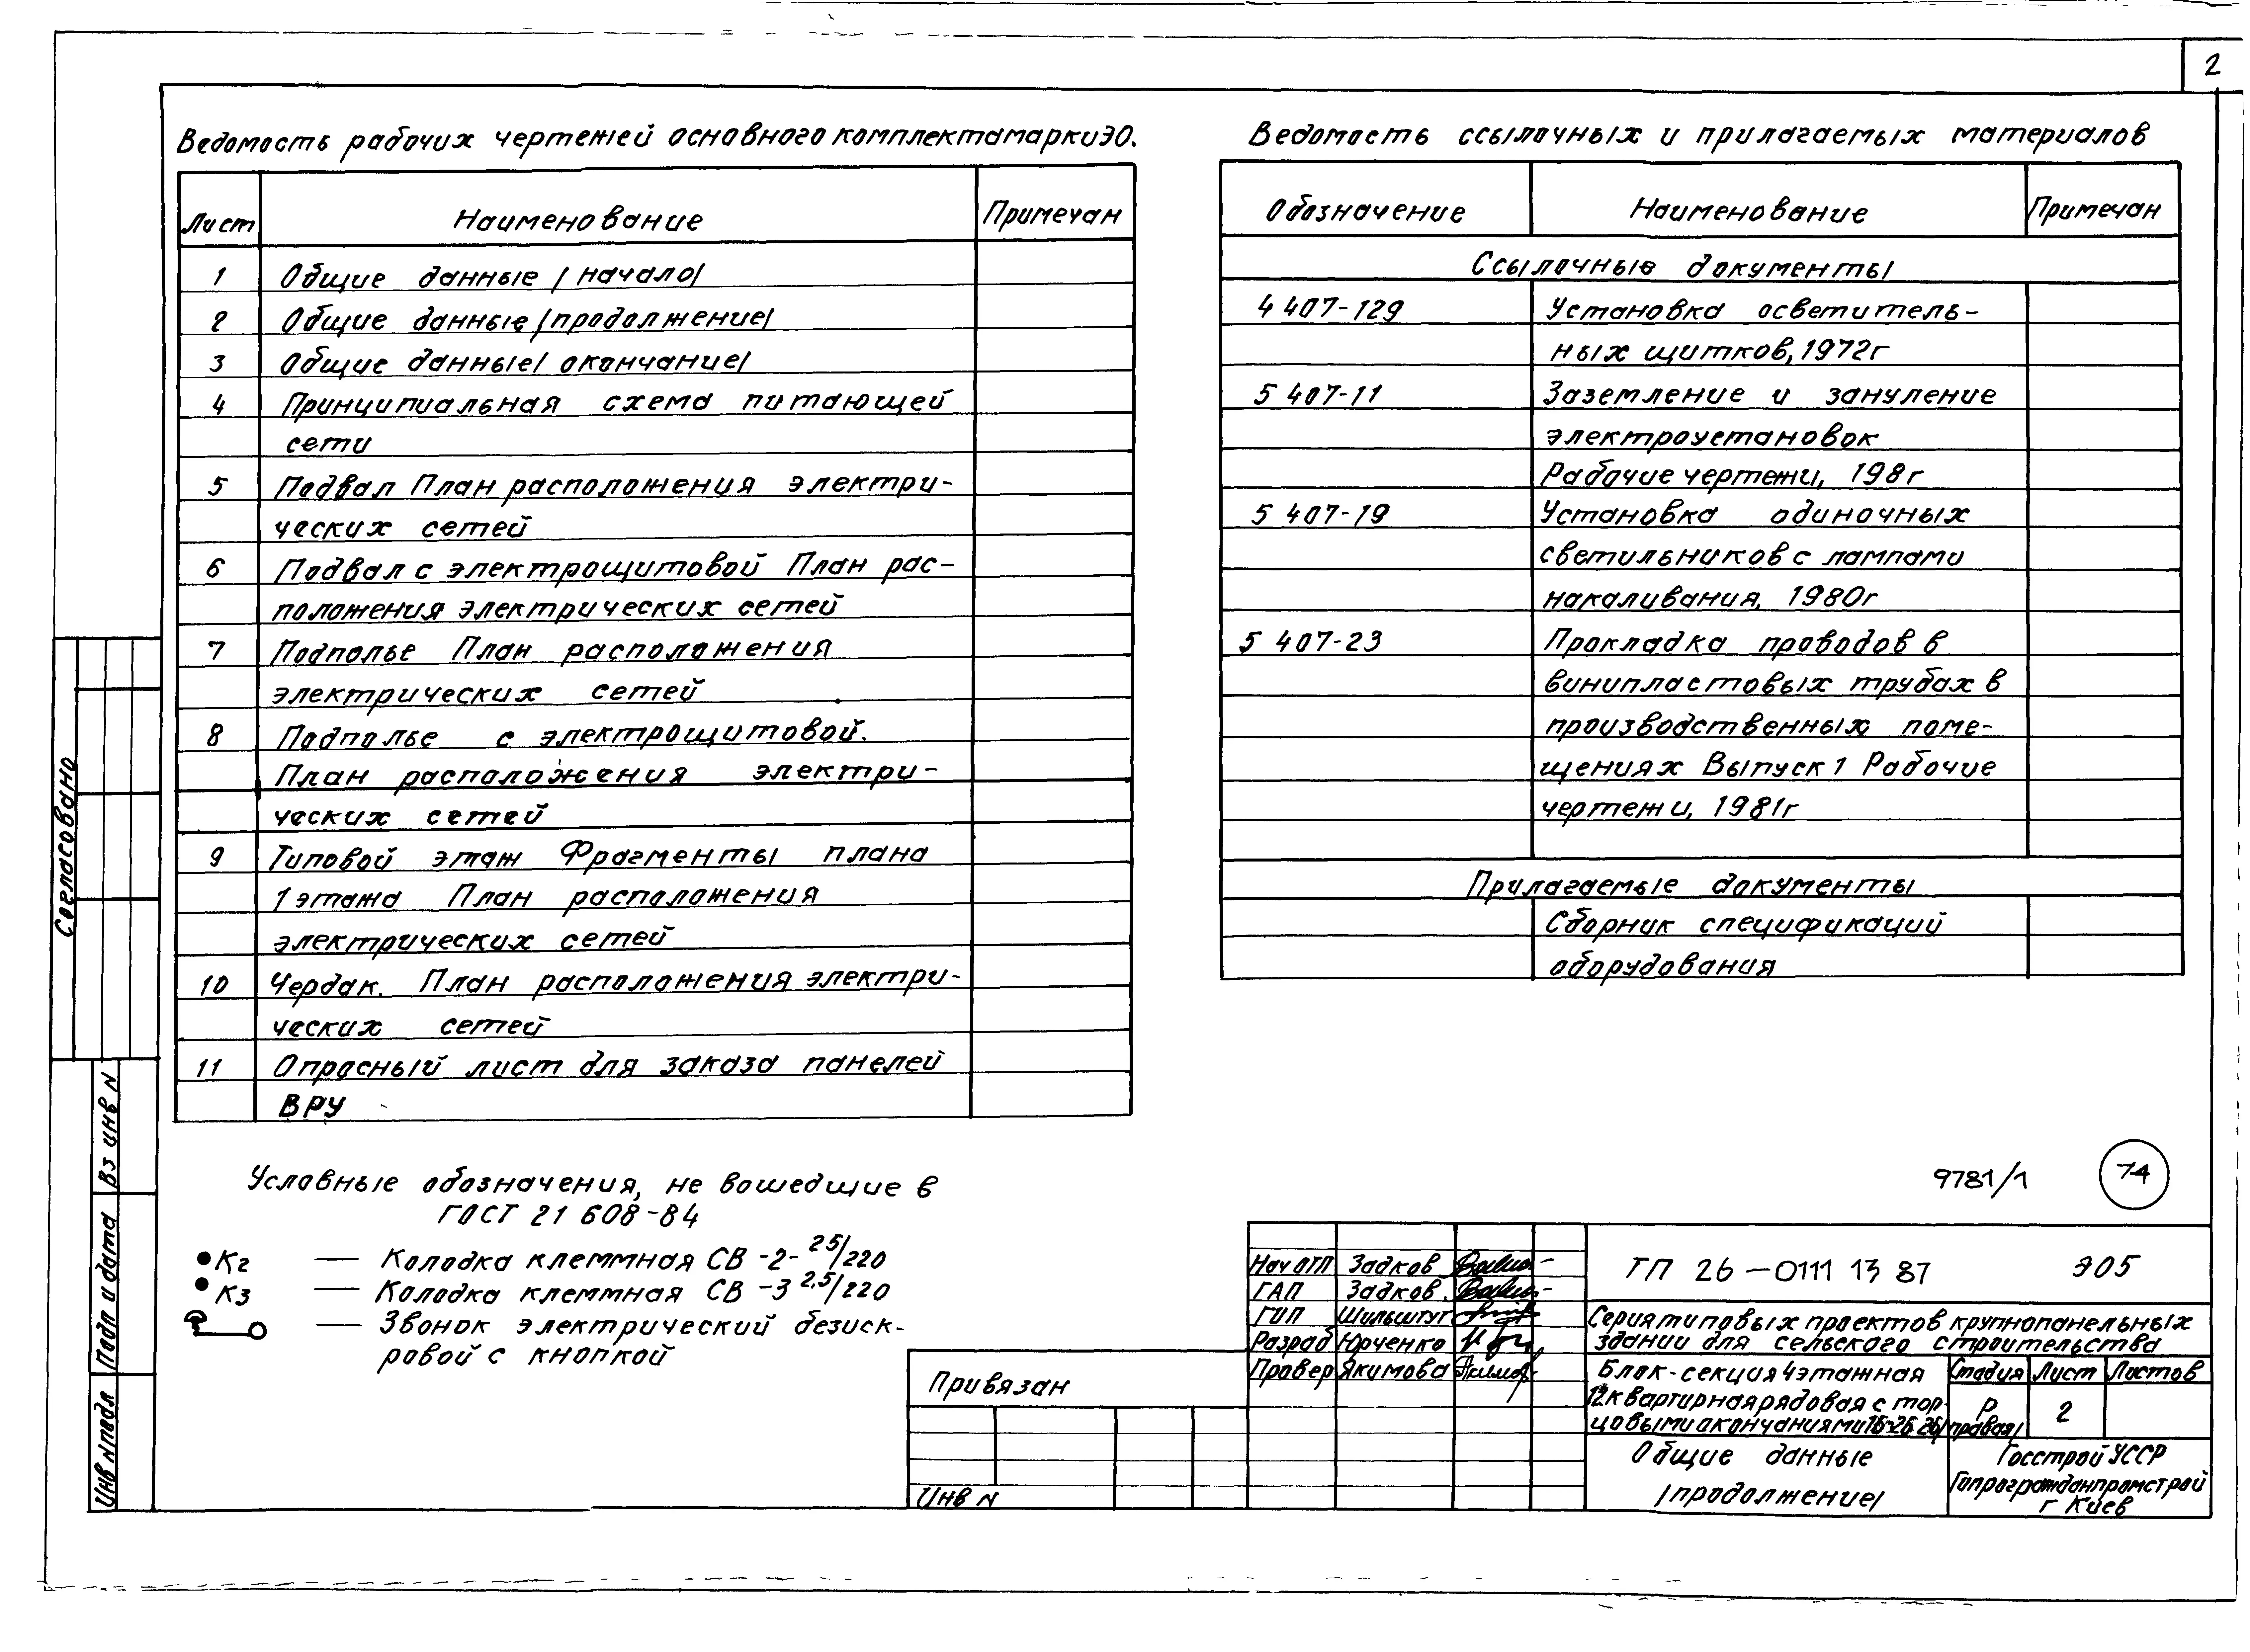 2
Ведомость рабочих чертежей основного комплекта марки ЭО.
Лист Наименование Примечан
1 Общие данные /начало/
2 Общие данные /продолжение/
3 Общие данные /окончание/
4 Принципиальная схема питающей
сети
5 Подвал План расположения электри-
ческих сетей
6 Подвал с электрощитовой План рас-
положения электрических сетей
7 Подполье План расположения
электрических сетей
8 Подполье с электрощитовой.
План расположения электри-
ческих сетей
9 Типовой этаж Фрагменты плана
1 этажа План расположения
электрических сетей
10 Чердак. План расположения электри-
ческих сетей
11 Опросный лист для заказа панелей
ВРУ
Ведомость ссылочных и прилагаемых материалов
Обозначение Наименование Примечан
Ссылочные документы
4 407-129 Установка осветитель-
ных щитков, 1972г
5 407-11 Заземление и зануление
электроустановок
Рабочие чертежи, 198г
5 407-19 Установка одиночных
светильников с лампами
накаливания, 1980г
5 407-23 Прокладка проводов в
винипластовых трубах в
производственных поме-
щениях Выпуск 1 Рабочие
чертежи, 1981г
Прилагаемые документы
Сборник спецификаций
оборудования
Условные обозначения, не вошедшие в
ГОСТ 21 608-84
К2 — Колодка клеммная СВ -2- 25/220
К3 — Колодка клеммная СВ -3 2,5/220
— Звонок электрический безиск-
ровой с кнопкой
Согласовано
Вз инв N
Подп и дата
Инв N подл
9781/1 74
Привязан
Инв N
Нач ОТП Задков
ГАП Задков
ГИП Шильштут
Разраб Юрченко
Провер Якимова
ТП 26-0111 13 87 ЭО5
Серия типовых проектов крупнопанельных
здании для сельского строительства
Блок-секция 4 этажная
12 квартирная рядовая с тор-
цовыми окончаниями 1Б-2Б /правая/
Стадия Лист Листов
Р 2
Общие данные
/продолжение/
Госстрой УССР
Гипрогражданпромстрой
г Киев